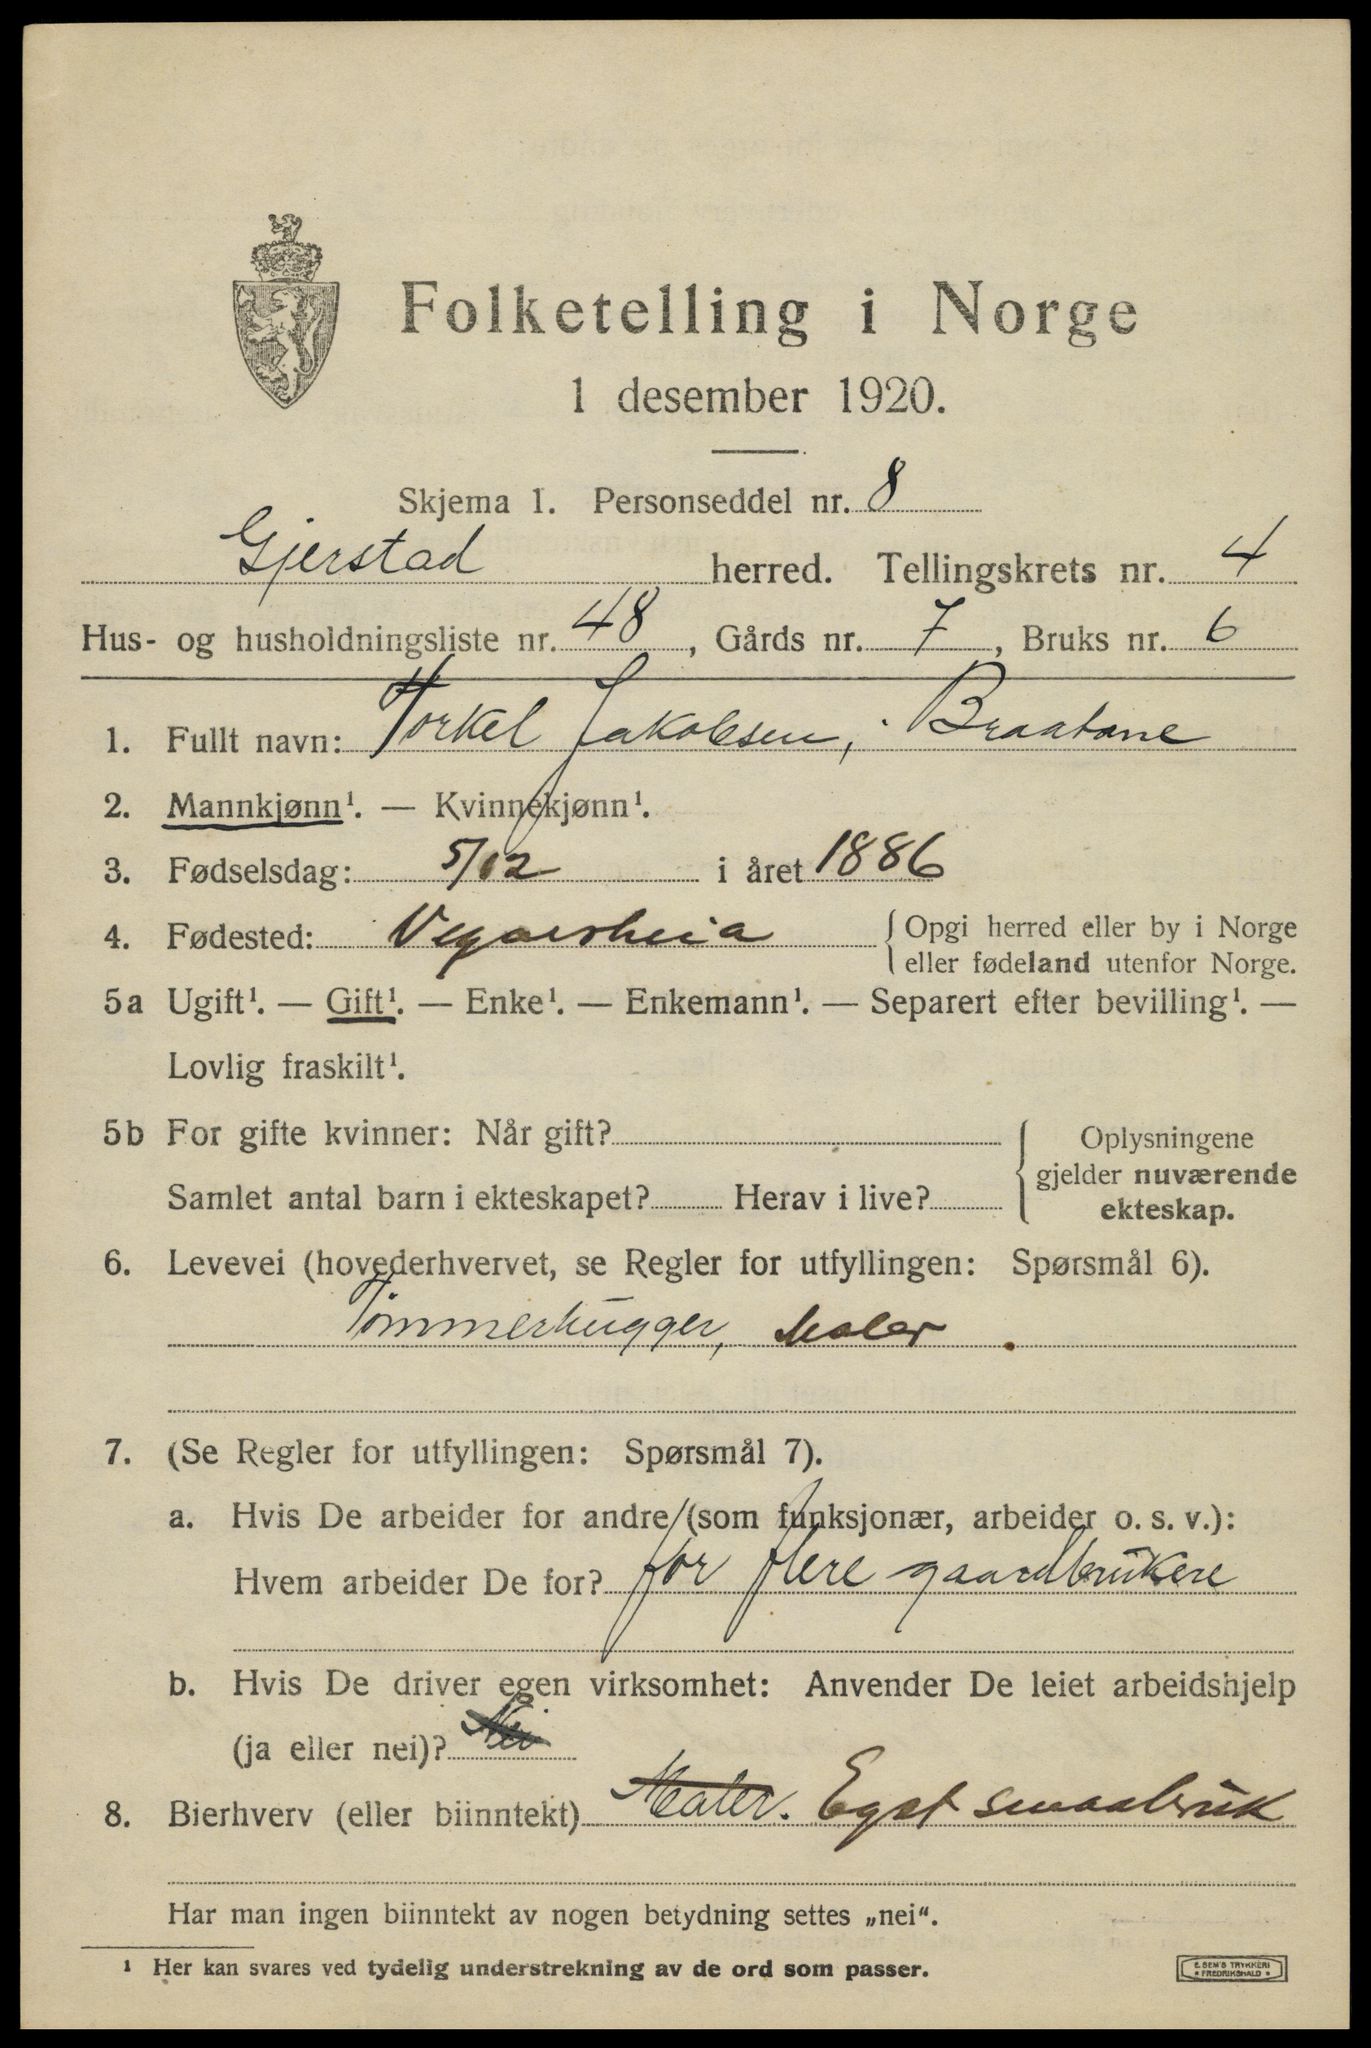 Folketelling i Norge
1 desember 1920.
Skjema 1. Personseddel nr. 8
Gjerstad herred. Tellingskrets nr. 4
Hus- og husholdningsliste nr. 48, Gårds nr. 7, Bruks nr. 6
1. Fullt navn: Torkel Jakobsen, Braatane
2. Mannkjønn¹. — Kvinnekjønn¹.
3. Fødselsdag: 5/12 i året 1886
4. Fødested: Vegaarsheia { Opgi herred eller by i Norge
eller fødeland utenfor Norge.
5a Ugift¹. — Gift¹. — Enke¹. — Enkemann¹. — Separert efter bevilling¹. —
Lovlig fraskilt¹.
5b For gifte kvinner: Når gift?
Samlet antal barn i ekteskapet? Herav i live?
Oplysningene
gjelder nuværende
ekteskap.
6. Levevei (hovederhvervet, se Regler for utfyllingen: Spørsmål 6).
Tømmerhugger, Maler
7. (Se Regler for utfyllingen: Spørsmål 7).
a. Hvis De arbeider for andre (som funksjonær, arbeider o. s. v.):
Hvem arbeider De for? for flere gaardbrukere
b. Hvis De driver egen virksomhet: Anvender De leiet arbeidshjelp
(ja eller nei)? Nei
8. Bierhverv (eller biinntekt) Maler. Eget smaabruk
Har man ingen biinntekt av nogen betydning settes „nei“.
¹ Her kan svares ved tydelig understrekning av de ord som passer.
E. SEM'S TRYKKERI
* FREDRIKSHALD *